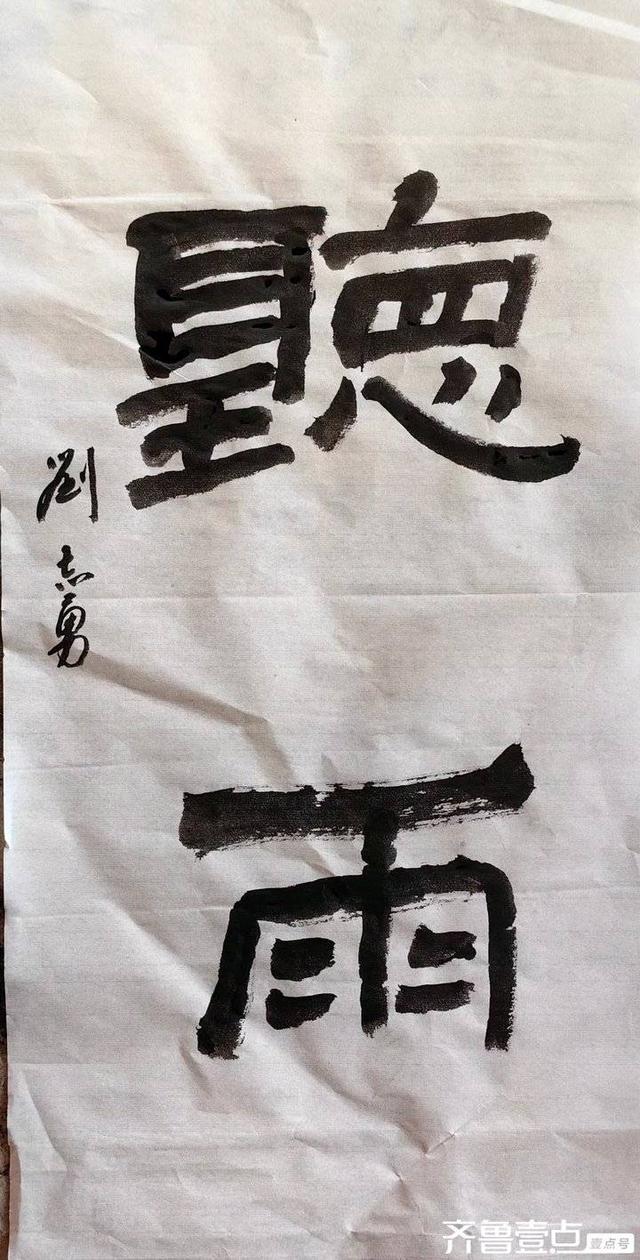 聽雨
劉志勇
齐鲁壹点 壹点号